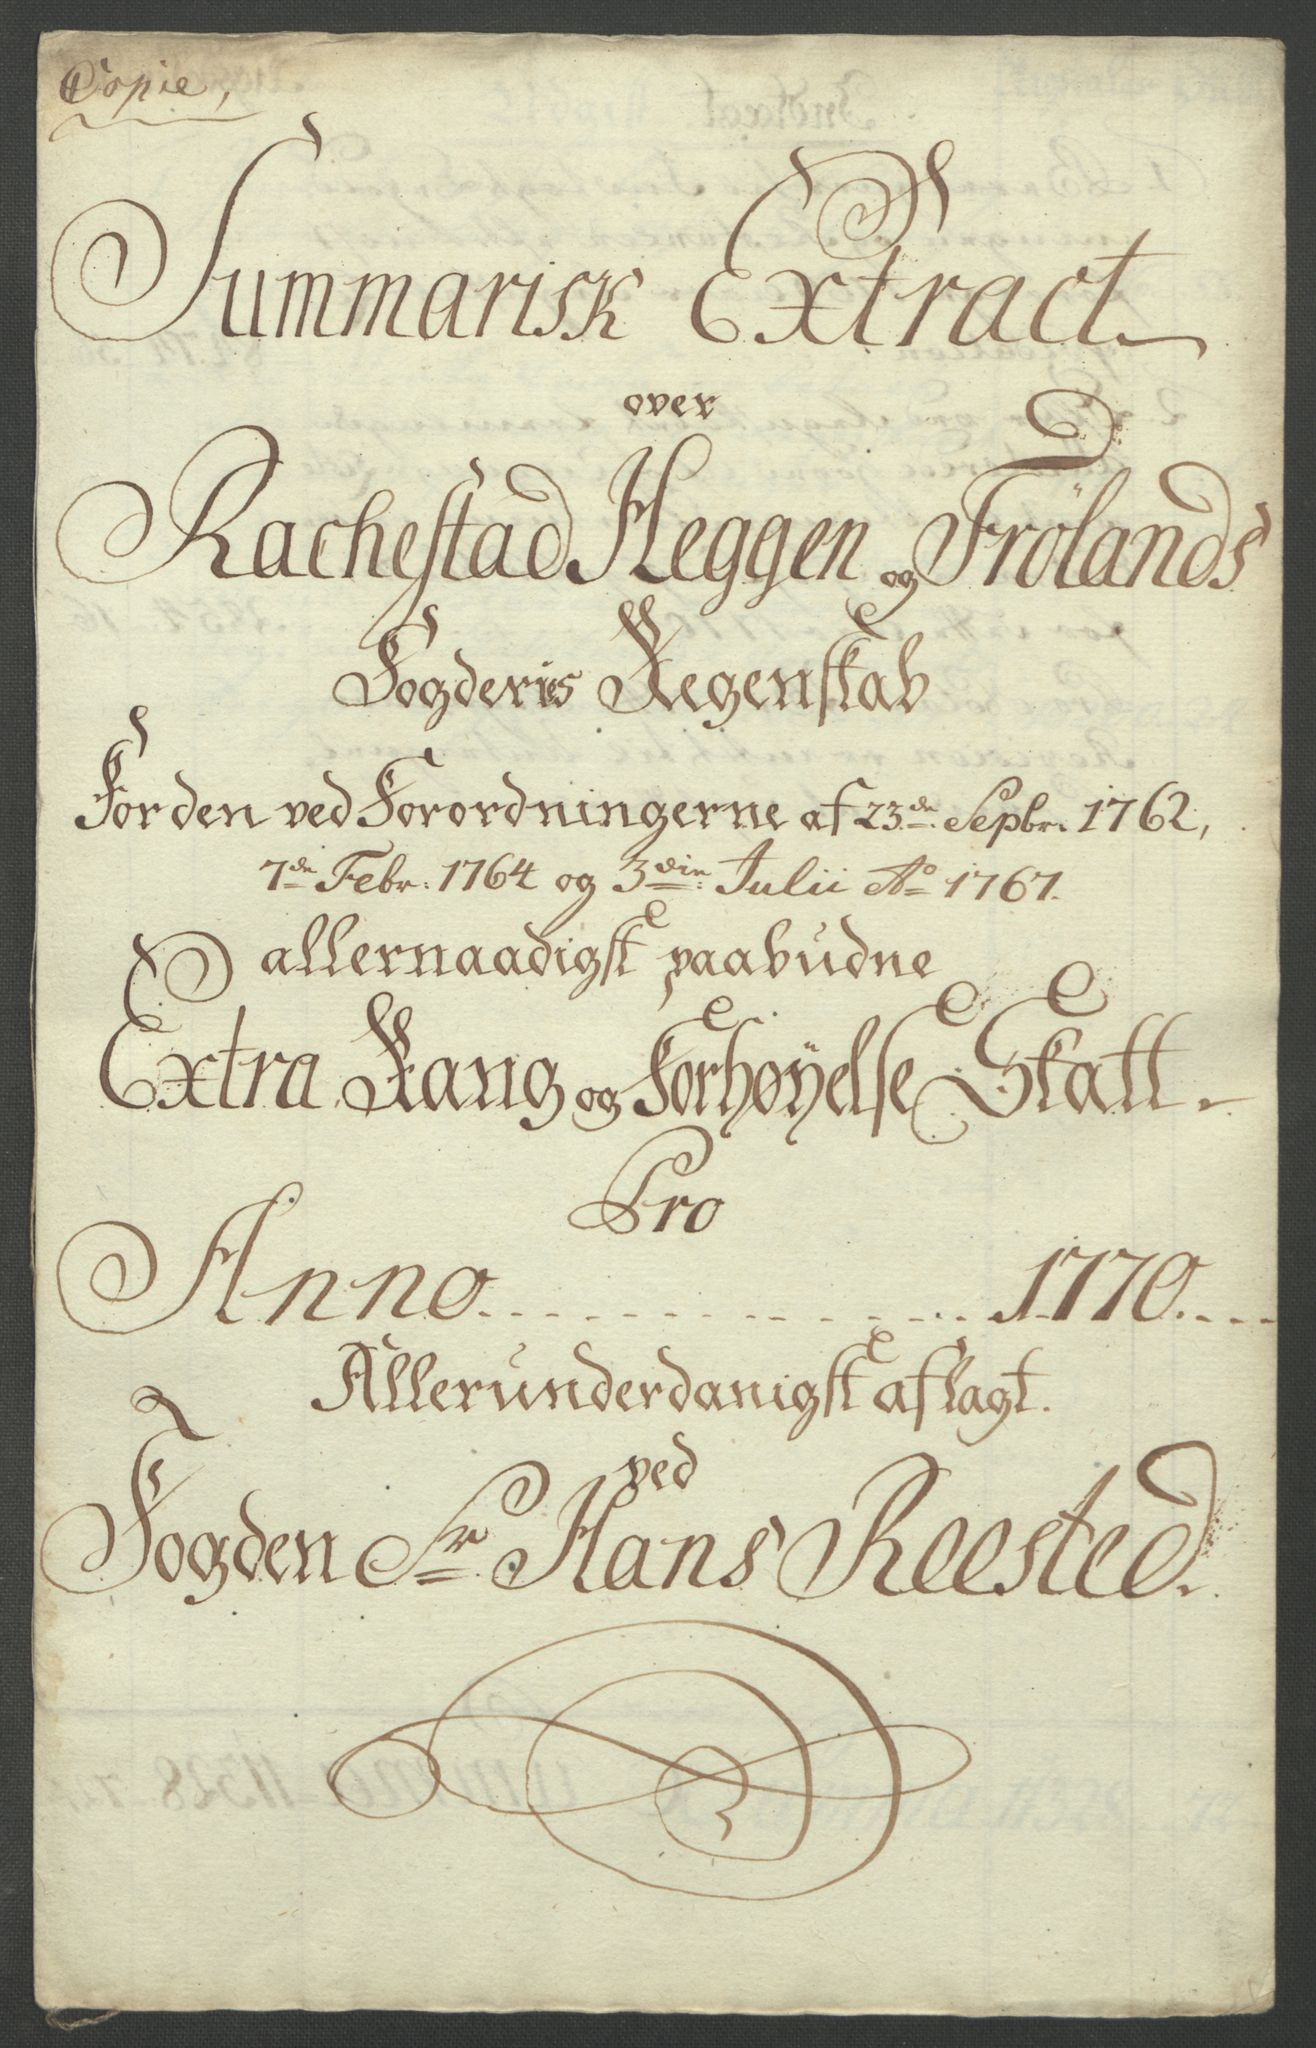 Copie,
Summarisk Extract
over
Rachestad Heggen og Frølands
Fogderies Regenskab
For den ved Forordningerne af 23de Sepbr. 1762,
7de Febr: 1764 og 3die: Julii Ao 1767.
allernaadigst paabudne
Extra Rang og Forhøyelse Skatt.
Pro
Anno 1770.
Allerunderdanigst aflagt.
ved
Fogden Sr. Hans Reested.